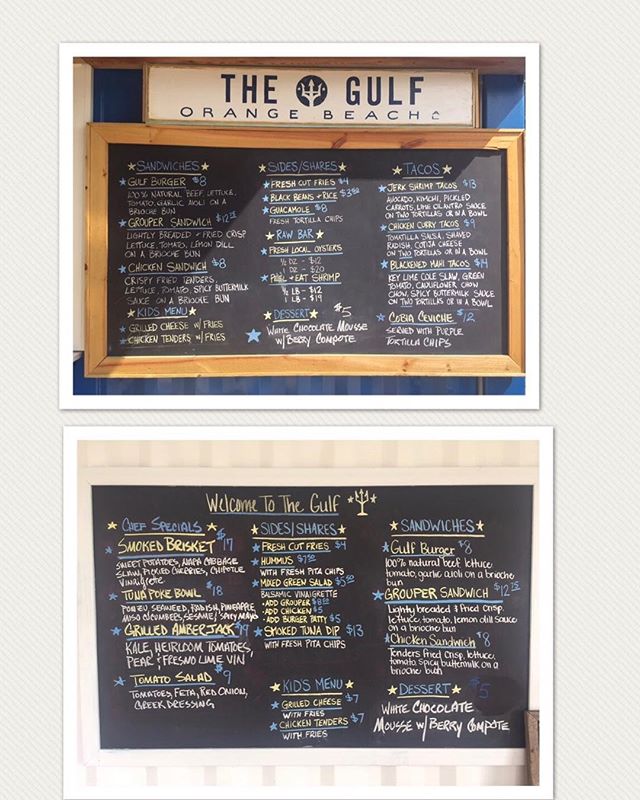 THE GULF
ORANGE BEACH
SANDWICHES
GULF BURGER $8
100% NATURAL BEEF, LETTUCE,
TOMATO, GARLIC AIOLI ON A
BRIOCHE BUN
GROUPER SANDWICH
LIGHTLY BREADED + FRIED CRISP
LETTUCE, TOMATO, LEMON DILL
ON A BRIOCHE BUN
CHICKEN SANDWICH $8
CRISPY FRIED TENDERS,
LETTUCE, TOMATO, SPICY BUTTERMILK
SAUCE ON A BRIOCHE BUN
KIDS MENU
GRILLED CHEESE W/ FRIES
CHICKEN TENDERS W/ FRIES
SIDES/SHARES
FRESH CUT FRIES $4
BLACK BEANS + RICE
GUACAMOLE $8
FRESH TORTILLA CHIPS
RAW BAR
FRESH LOCAL OYSTERS
1/2 DZ - $12
1 DZ - $20
PEEL + EAT SHRIMP
1/2 LB - $12
1 LB - $19
DESSERT $5
WHITE CHOCOLATE MOUSSE
W/ BERRY COMPOTE
TACOS
JERK SHRIMP TACOS $13
AVOCADO, KIMCHI, PICKLED
CARROTS, LIME CILANTRO SAUCE
ON TWO TORTILLAS OR IN A BOWL
CHICKEN CURRY TACOS $9
TOMATILLA SALSA, SHAVED
RADISH, COTIJA CHEESE
ON TWO TORTILLAS OR IN A BOWL
BLACKENED MAHI TACOS $14
KEY LIME COLE SLAW, GREEN
TOMATO, CAULIFLOWER CHOW
CHOW, SPICY BUTTERMILK SAUCE
ON TWO TORTILLAS OR IN A BOWL
COBIA CEVICHE $12
SERVED WITH PURPLE
TORTILLA CHIPS
Welcome To The Gulf
CHEF SPECIALS
SMOKED BRISKET $17
SWEET POTATOES, NAPA CABBAGE
SLAW, PICKLED CHERRIES, CHIPOTLE
VINAIGRETTE
TUNA POKE BOWL $18
PONZU, SEAWEED, RADISH, PINEAPPLE,
MISO CUCUMBERS, SESAME/SPICY MAYO
GRILLED AMBERJACK $19
KALE, HEIRLOOM TOMATOES,
PEAR + FRESNO LIME VIN
TOMATO SALAD $9
TOMATOES, FETA, RED ONION,
GREEK DRESSING
SIDES/SHARES
FRESH CUT FRIES $4
HUMMUS
WITH FRESH PITA CHIPS
MIXED GREEN SALAD
BALSAMIC VINAIGRETTE
-ADD GROUPER
-ADD CHICKEN $5
-ADD BURGER PATTY $5
SMOKED TUNA DIP $13
WITH FRESH PITA CHIPS
KID'S MENU
GRILLED CHEESE $7
WITH FRIES
CHICKEN TENDERS $7
WITH FRIES
SANDWICHES
Gulf Burger $8
100% natural beef, lettuce
tomato, garlic aioli on a brioche
bun
GROUPER SANDWICH
Lightly breaded & fried crisp.
lettuce, tomato, lemon dill sauce
on a brioche bun
Chicken Sandwich $8
Tenders fried crisp, lettuce,
tomato, spicy buttermilk on a
brioche bun
DESSERT $5
WHITE CHOCOLATE
MOUSSE W/ BERRY COMPOTE